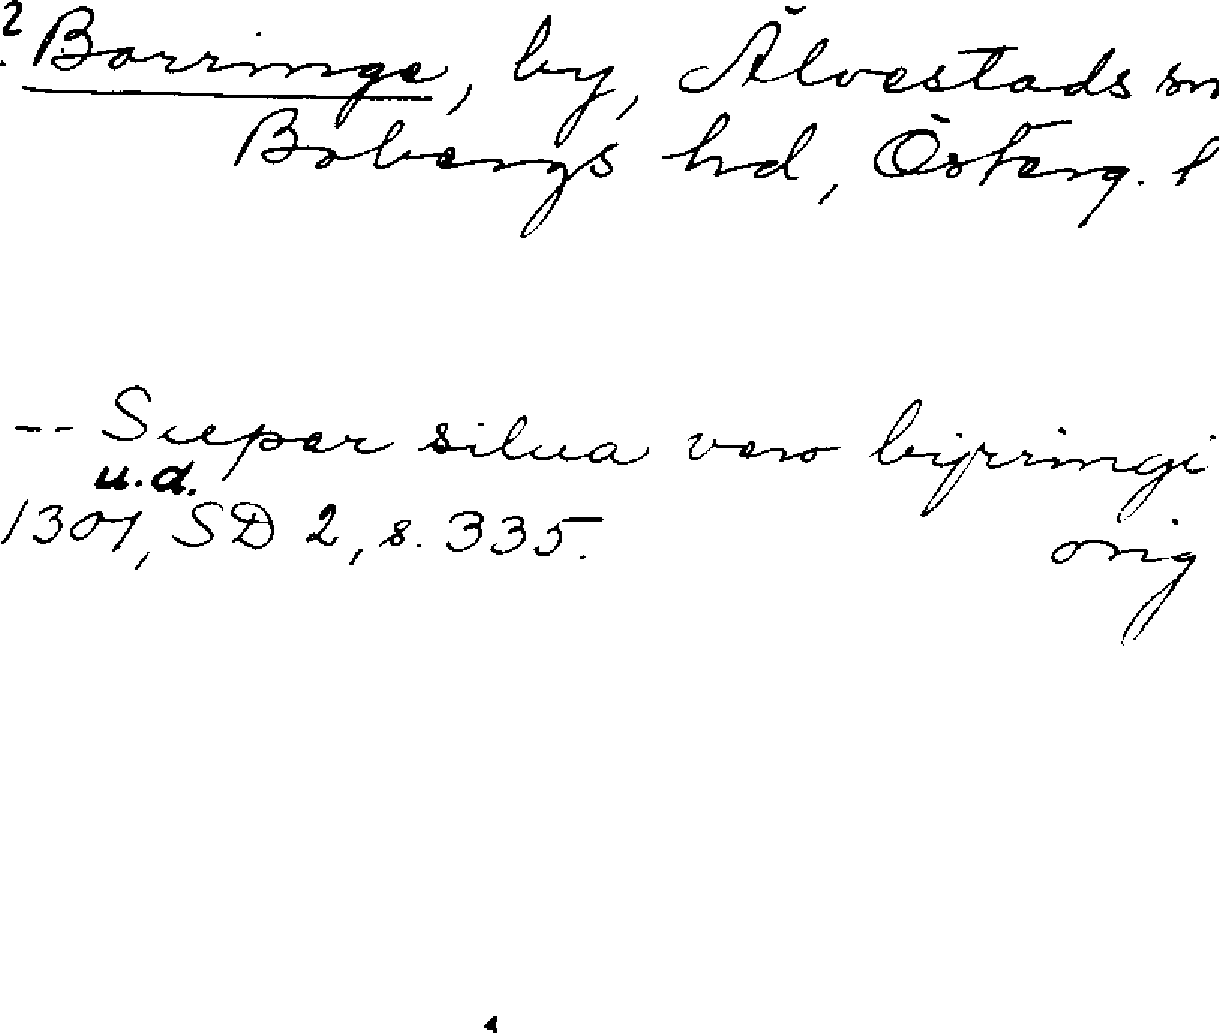 ? Borringe, by, Älvestads sn
Bobergs hd, Österg. l
-- Super silua vero bijrringi
u.d.
1301, SD 2, s. 335. orig